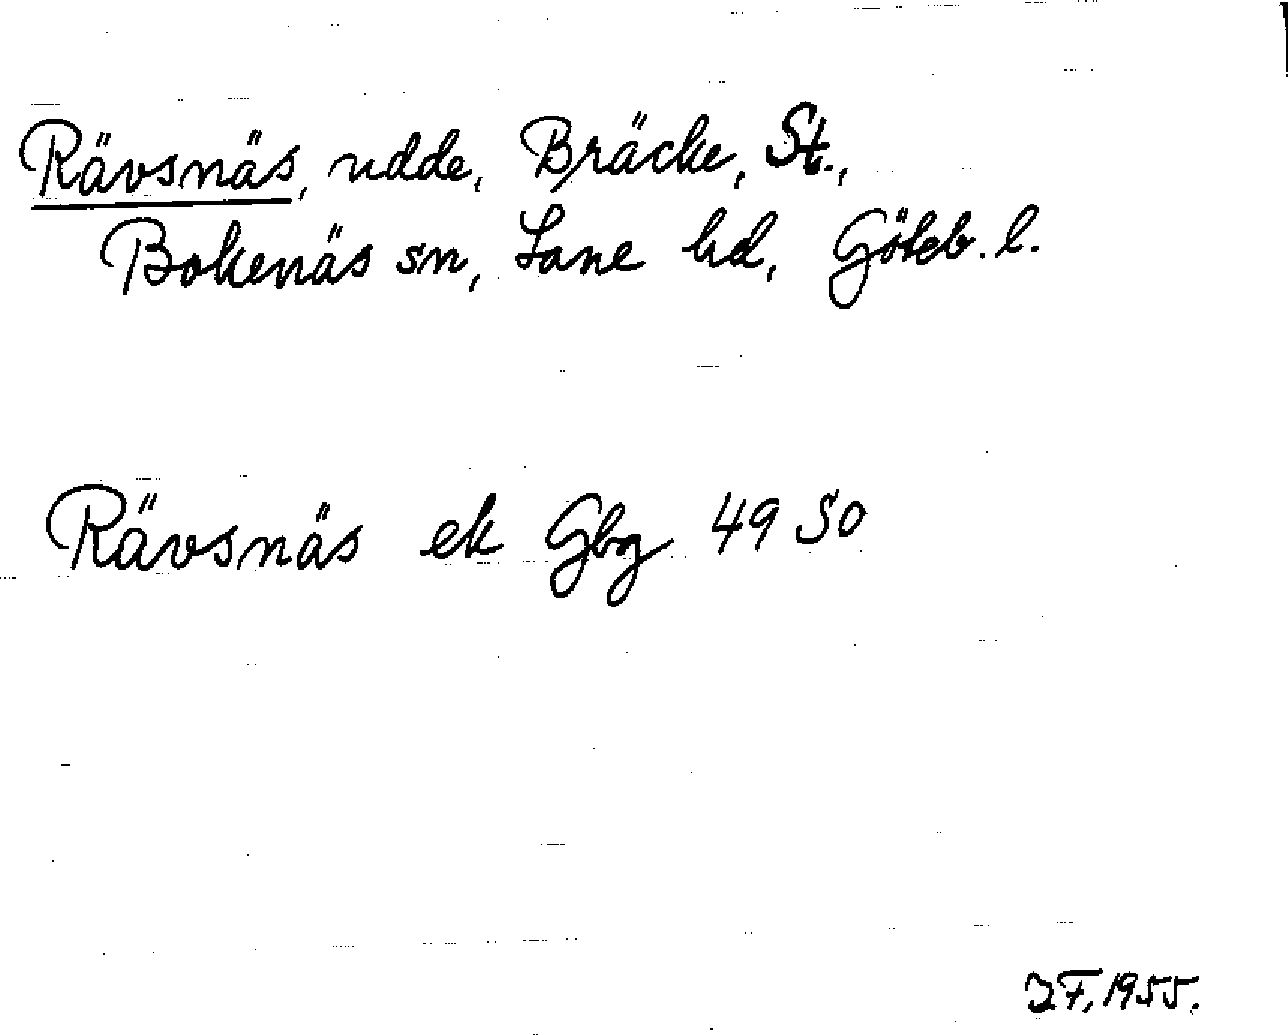 Rävsnäs, udde, Bräcke, St.,
Bokenäs sn, Lane hd, Göteb. l.
Rävsnäs ek Gbg 49 SO
IF, 1955.